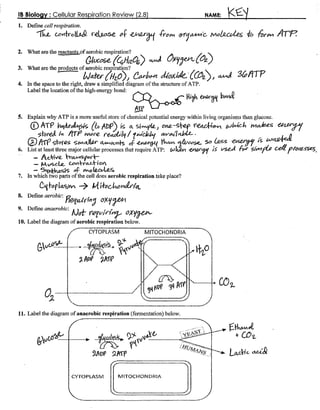 IB Biology: Cellular Respiration Review [2.8] NAME: KEY
1. Define cell respiration.
The controlled release of energy from organic molecules to form ATP.
2. What are the reactants of aerobic respiration?
Glucose (C6H12O6) and Oxygen (O2)
3. What are the products of aerobic respiration?
Water (H2O), Carbon dioxide (CO2), and 36 ATP
4. In the space to the right, draw a simplified diagram of the structure of ATP.
Label the location of the high-energy bond:
High energy bond
ATP
5. Explain why ATP is a more useful store of chemical potential energy within living organisms than glucose.
① ATP hydrolysis (to ADP) is a simple, one-step reaction which makes energy
stored in ATP more readily / quickly available.
② ATP stores smaller amounts of energy than glucose, so less energy is wasted
when energy is used for simple cell processes.
6. List at least three major cellular processes that require ATP:
- Active transport
- Muscle contraction
- Synthesis of molecules
7. In which two parts of the cell does aerobic respiration take place?
Cytoplasm → Mitochondria
8. Define aerobic:
Requiring oxygen
9. Define anaerobic:
Not requiring oxygen
10. Label the diagram of aerobic respiration below.
CYTOPLASM MITOCHONDRIA
Glucose
glycolysis
2x Pyruvate
2 ADP 2 ATP
H2O
34 ADP 34 ATP
CO2
O2
11. Label the diagram of anaerobic respiration (fermentation) below.
Glucose
glycolysis
2x Pyruvate
2ADP 2ATP
YEAST
Ethanol
+ CO2
HUMANS
Lactic acid
CYTOPLASM MITOCHONDRIA